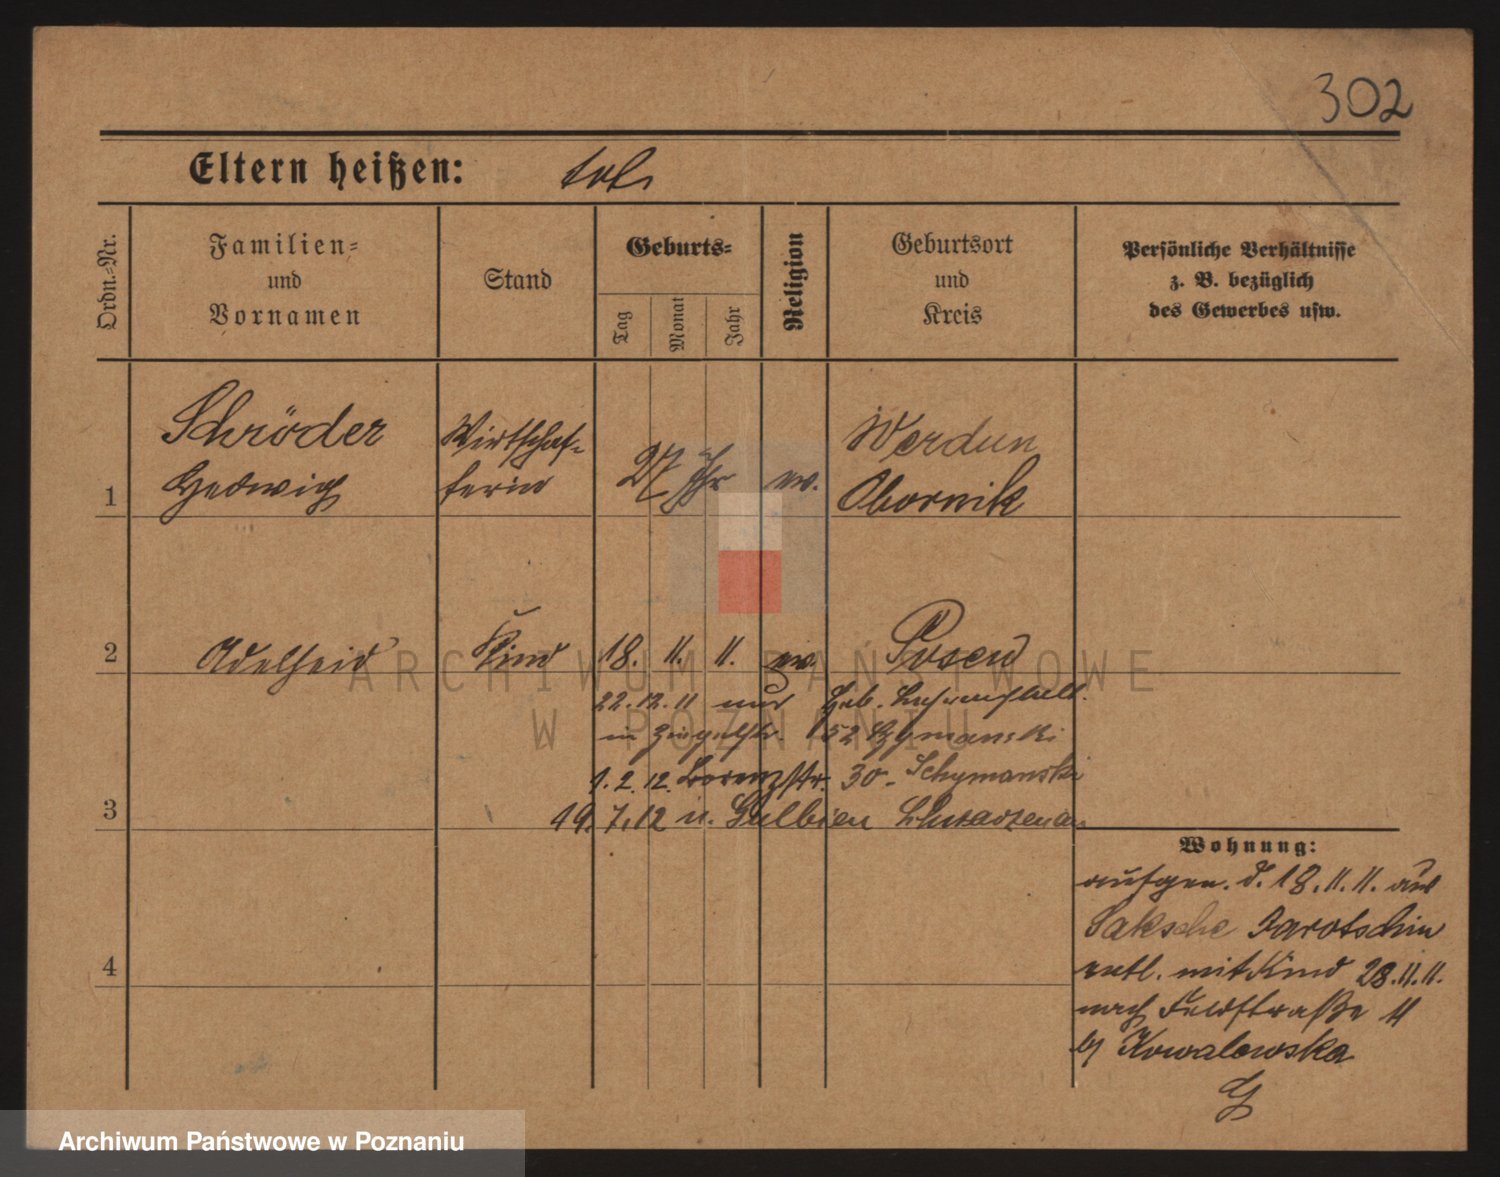 302
Eltern heißen: tot
Ordn.-Nr.
Familien-
und
Vornamen
Stand
Geburts-
Tag
Monat
Jahr
Religion
Geburtsort
und
Kreis
Persönliche Verhältnisse
z. B. bezüglich
des Gewerbes usw.
Schröder
Hedwig
Wirtschaf-
terin
27 Jhr
ev.
Werdun
Obornik
1
2 Adelheid Kind 18. 11. 11. ev. Posen
22. 12. 11 Heb.
in 52 Szymanski
1. 2. 12. Lorenzstr. 30 - Schymanski
3
19. 7. 12 n.
Wohnung:
aufgen. d. 18. 11. 11. aus
Saksche Jarotschin
entl. mit Kind 28. 11. 11.
nach Feldstraße 11
b/ Kowalowska
4
ARCHIWUM PAŃSTWOWE
W POZNANIU
Archiwum Państwowe w Poznaniu